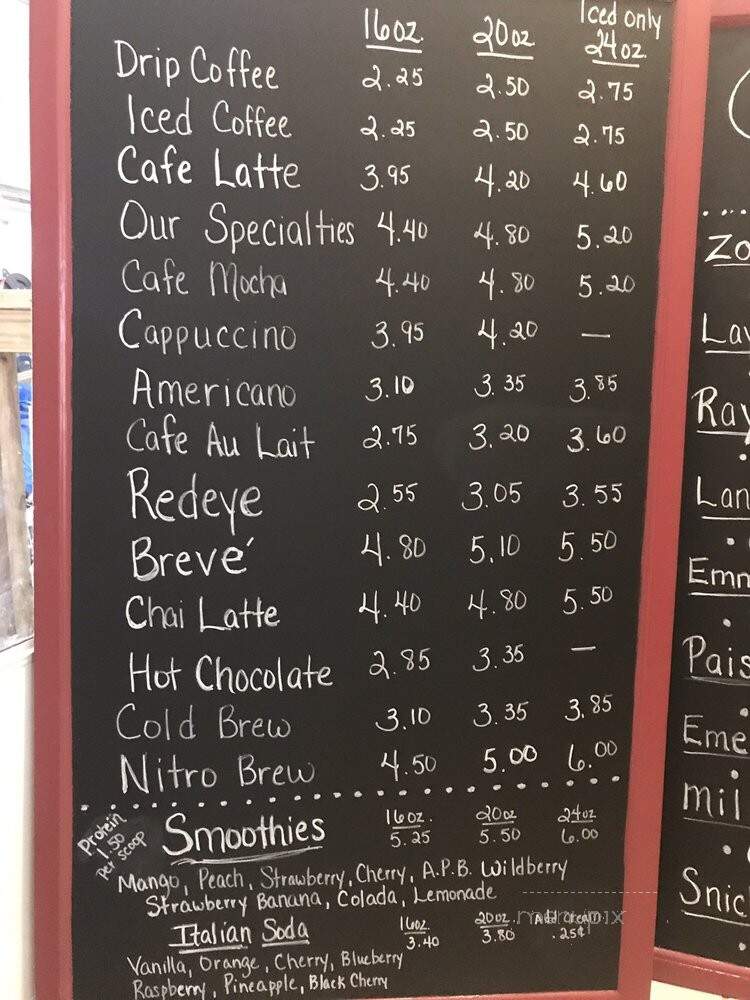 16oz. 20oz. Iced only 24oz.
Drip Coffee 2.25 2.50 2.75
Iced Coffee 2.25 2.50 2.75
Cafe Latte 3.95 4.20 4.60
Our Specialties 4.40 4.80 5.20
Cafe Mocha 4.40 4.80 5.20
Cappuccino 3.95 4.20 —
Americano 3.10 3.35 3.85
Cafe Au Lait 2.75 3.20 3.60
Redeye 2.55 3.05 3.55
Brevé 4.80 5.10 5.50
Chai Latte 4.40 4.80 5.50
Hot Chocolate 2.85 3.35 —
Cold Brew 3.10 3.35 3.85
Nitro Brew 4.50 5.00 6.00
Protein 1.50 per scoop
Smoothies 16oz. 5.25 20oz 5.50 24oz 6.00
Mango, Peach, Strawberry, Cherry, A.P.B. Wildberry
Strawberry Banana, Colada, Lemonade
Italian Soda 16oz 3.40 20oz. 3.80 Add .25¢
Vanilla, Orange, Cherry, Blueberry
Raspberry, Pineapple, Black Cherry
Zo
Lav
Ray
Lan
Emm
Pais
Eme
mil
Snic